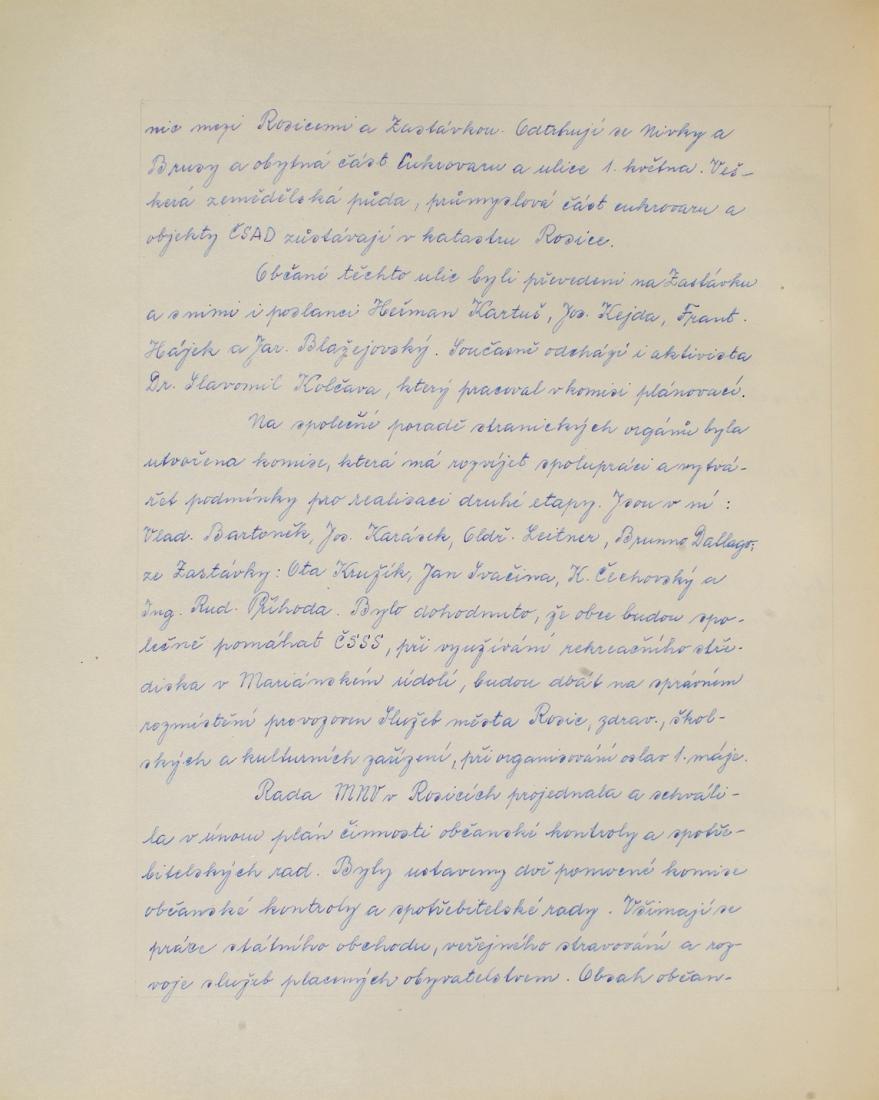 nic mezi Rosicemi a Zastávkou. Odtrhují se Nivky a
Brusy a obytná část Cukrovaru a ulice 1. května. Veš-
kerá zemědělská půda, průmyslová část cukrovaru a
objekty ČSAD zůstávají v katastru Rosice.
Občané těchto ulic byli převedeni na Zastávku
a s nimi i poslanci Heřman Kartuš, Jos. Kejda, Frant.
Hájek a Jar. Blažejovský. Současně odchází i aktivista
Dr. Slavomil Kolčava, který pracoval v komisi plánovací.
Na společné poradě stranických orgánů byla
utvořena komise, která má rozvíjet spolupráci a vytvá-
řet podmínky pro realisaci druhé etapy. Jsou v ní :
Vlad. Bartoněk, Jos. Karásek, Oldř. Leitner, Brunno Dallago;
ze Zastávky: Ota Kružík, Jan Svačina, K. Čechovský a
Ing. Rud. Příhoda. Bylo dohodnuto, že obce budou spo-
lečně pomáhat ČSSS, při využívání rekreačního stře-
diska v Mariánském údolí, budou dbát na správném
rozmístění provozoven Služeb města Rosic, zdrav., škol-
ských a kulturních zařízení, při organisování oslav 1. máje.
Rada MNV v Rosicích projednala a schváli-
la v únoru plán činnosti občanské kontroly a spotře-
bitelských rad. Byly ustaveny dvě pomocné komise
občanské kontroly a spotřebitelské rady. Všímají se
práce státního obchodu, veřejného stravování a roz-
voje služeb placených obyvatelstvem. Obsah občan-